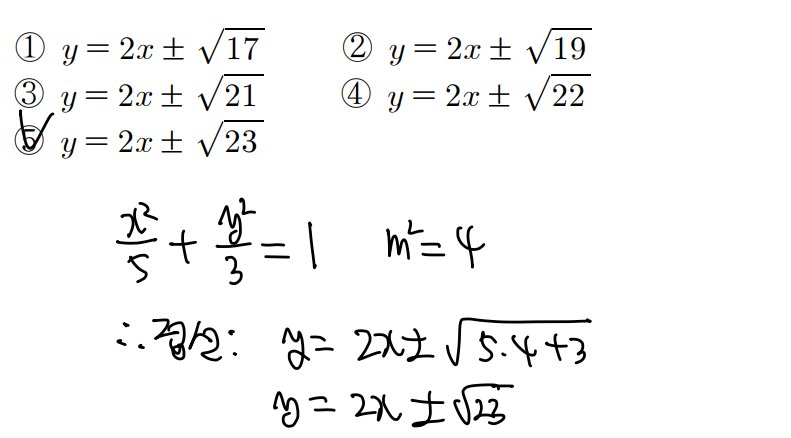 ① y = 2x ± √17 ② y = 2x ± √19
③ y = 2x ± √21 ④ y = 2x ± √22
⑤ y = 2x ± √23
x²/5 + y²/3 = 1 m² = 4
∴ 접선: y = 2x ± √5·4+3
y = 2x ± √23